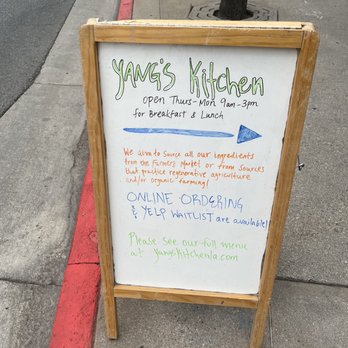 YANG'S KitcheN
OPEN Thurs-Mon 9am-3pm
for Breakfast & Lunch
We aim to source all our ingredients
from the Farmers Market or from sources
that practice regenerative agriculture
and/or organic farming!
ONLINE ORDERING
& YELP WAITLIST are available!
Please see our full menu
at yangskitchenla.com